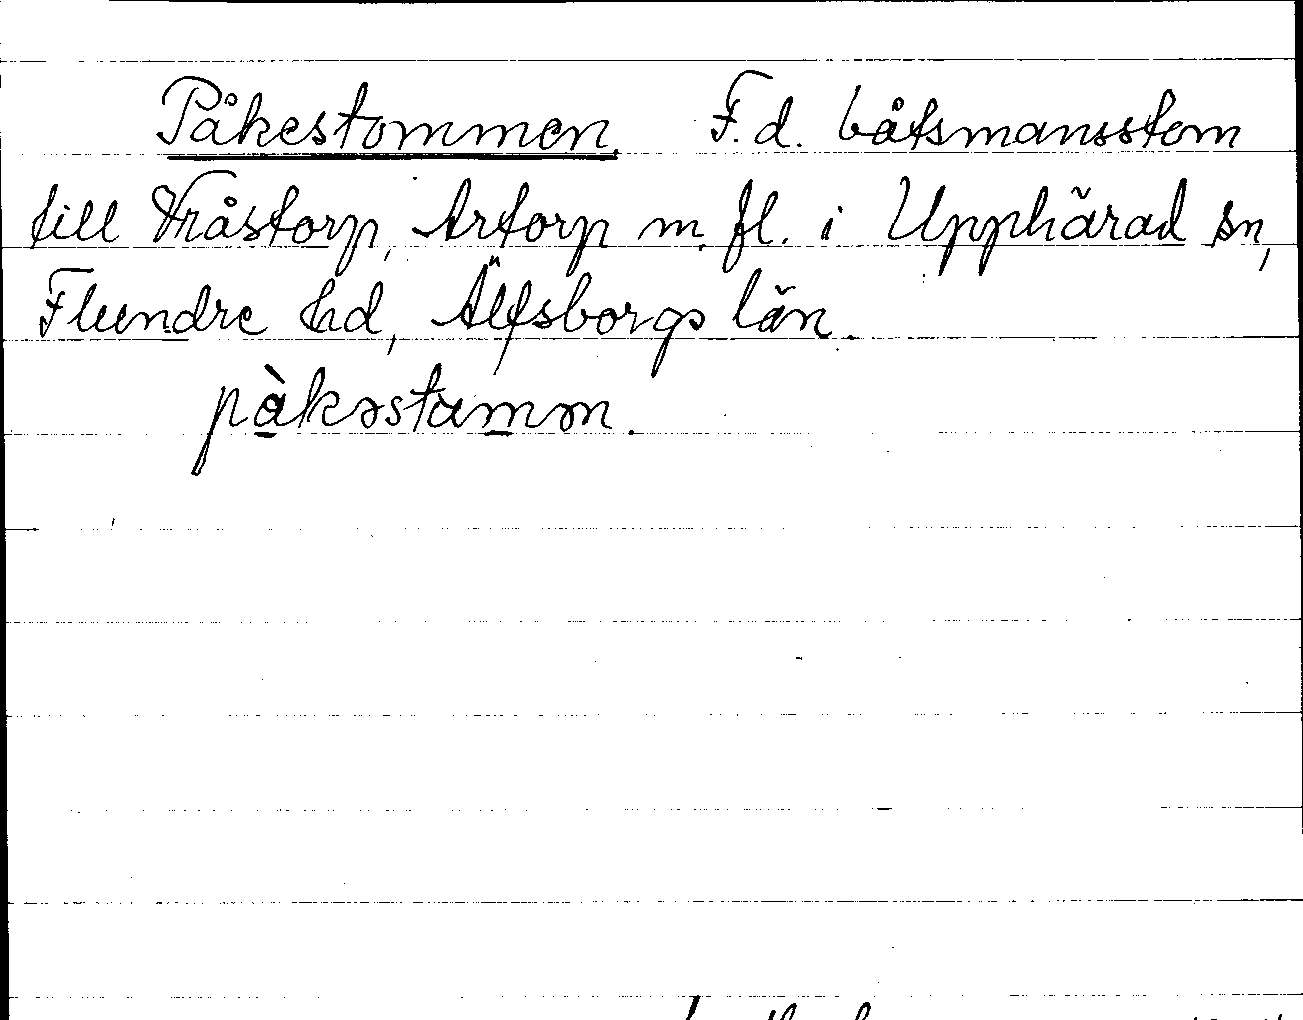 Påkestommen. F.d. båtsmansstom
till Vråstorp, Artorp m. fl. i Upphärad sn,
Flundre hd, Älfsborgs län.
pàkəstamən.